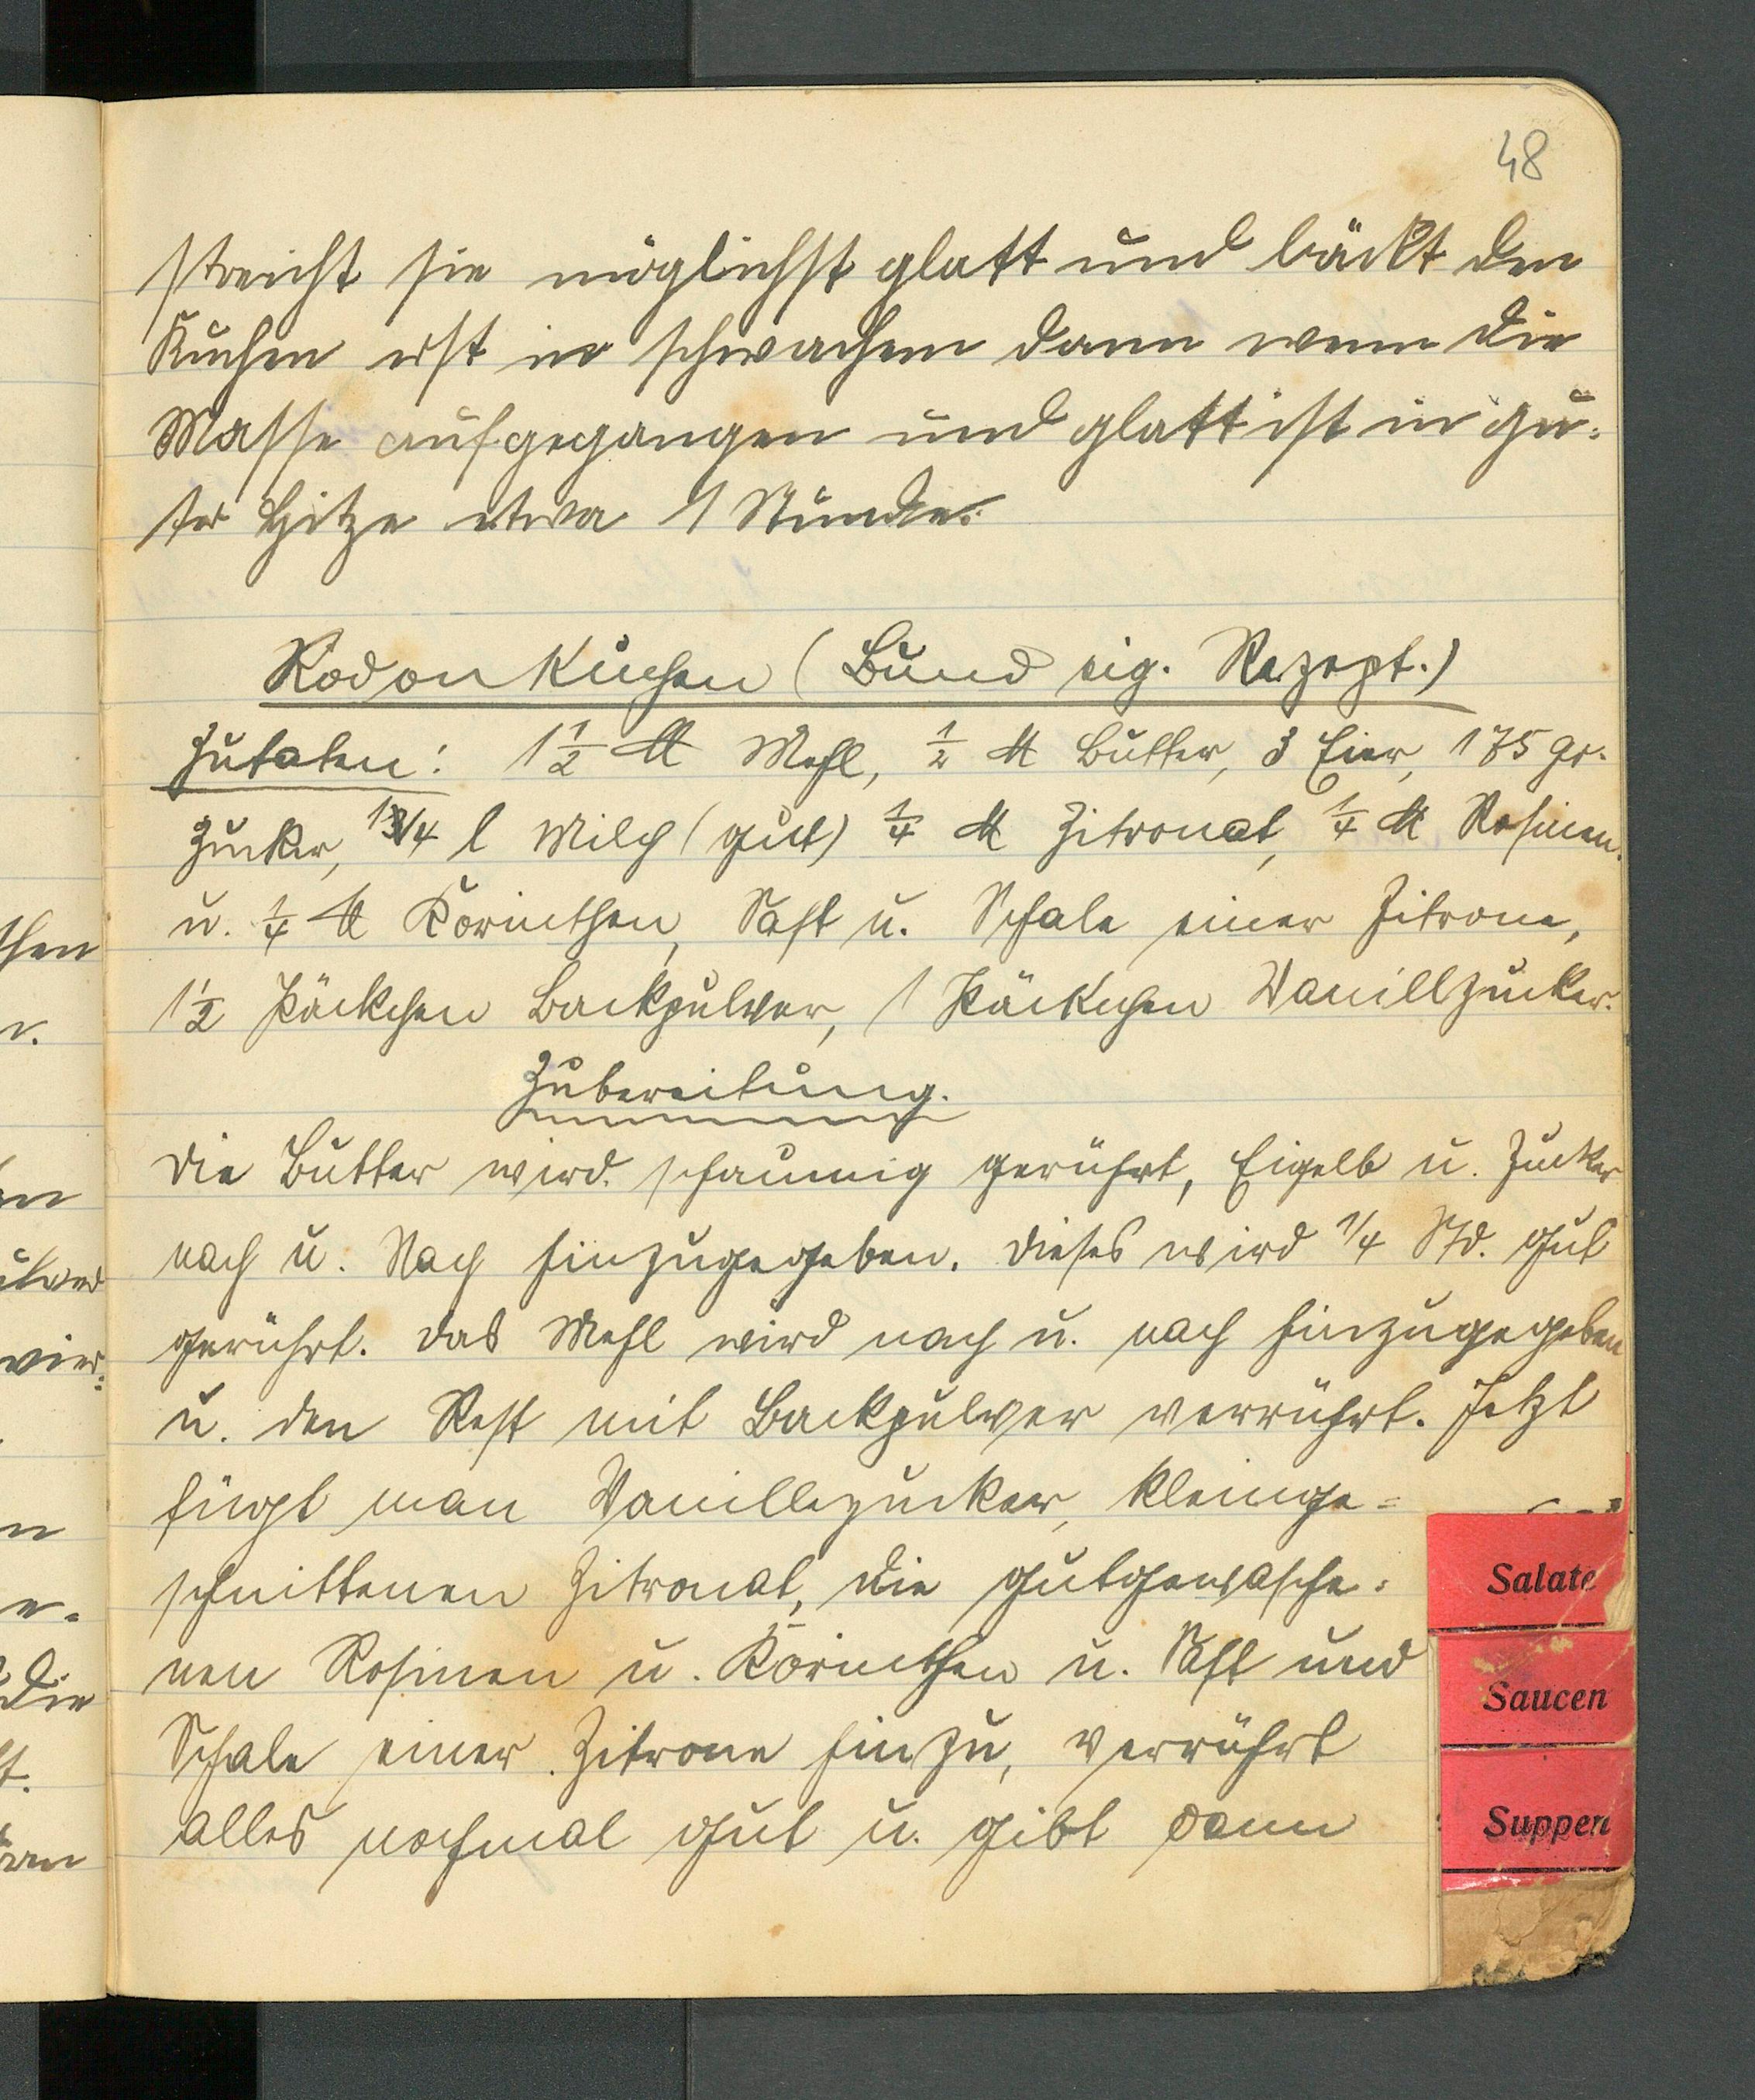 48
streicht sie möglichst glatt und bäckt den
Kuchen erst in schwachem dann wenn die
Masse aufgegangen und glatt ist in gu-
ter Hitze etwa 1 Stunde.
Rodonkuchen (Bund eig. Rezept.)
Zutaten: 1 1/2 ℔ Mehl, 1/2 ℔ Butter, 3 Eier, 175 gr.
Zucker, 1/4 l Milch (gut) 1/4 ℔ Zitronat, 1/4 ℔ Rosinen
u. 1/4 ℔ Korinthen, Saft u. Schale einer Zitrone,
1 1/2 Päckchen Backpulver, 1 Päckchen Vanillzucker.
Zubereitung.
Die Butter wird schaumig gerührt, Eigelb u. Zucker
nach u. Nach hinzugegeben. Dieses wird 1/4 Std. gut
gerührt. Das Mehl wird nach u. nach hinzugegeben
u. den Rest mit Backpulver verrührt. Jetzt
fügt man Vanillezucker, kleinge=
schnittenen Zitronat, die gutgewasche-
nen Rosinen u. Korinthen u. Saft und
Schale einer Zitrone hinzu, verrührt
alles nochmal gut u. gibt dann
Salate
Saucen
Suppen